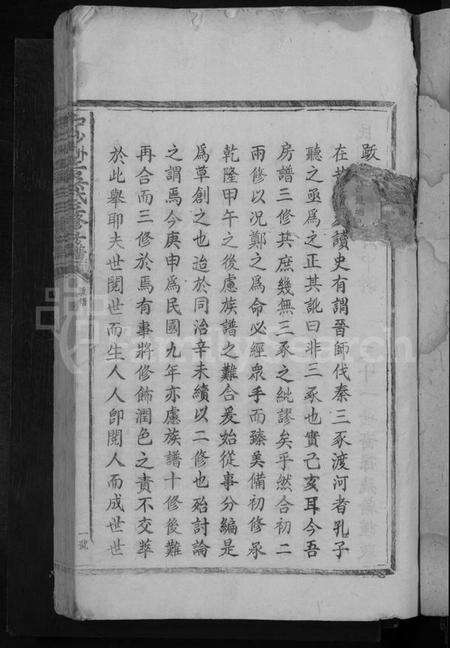 跋
在昔讀史有謂晉師伐秦三豕渡河者孔子
聽之亟為之正其訛曰非三豕也實己亥耳今吾
房譜三修其庶幾無三豕之紕謬矣乎然合初二
兩修以況鄭之為命必經眾手而臻美備初修承
乾隆甲午之後慮族譜之難合爰始從事分編是
為草創之也迨於同治辛未續以二修也殆討論
之謂焉今庚申為民國九年亦慮族譜十修後難
再合而三修於焉有事將修飾潤色之責不交萃
於此舉耶夫世閱世而生人人即閱人而成世世
一號
FamilySearch